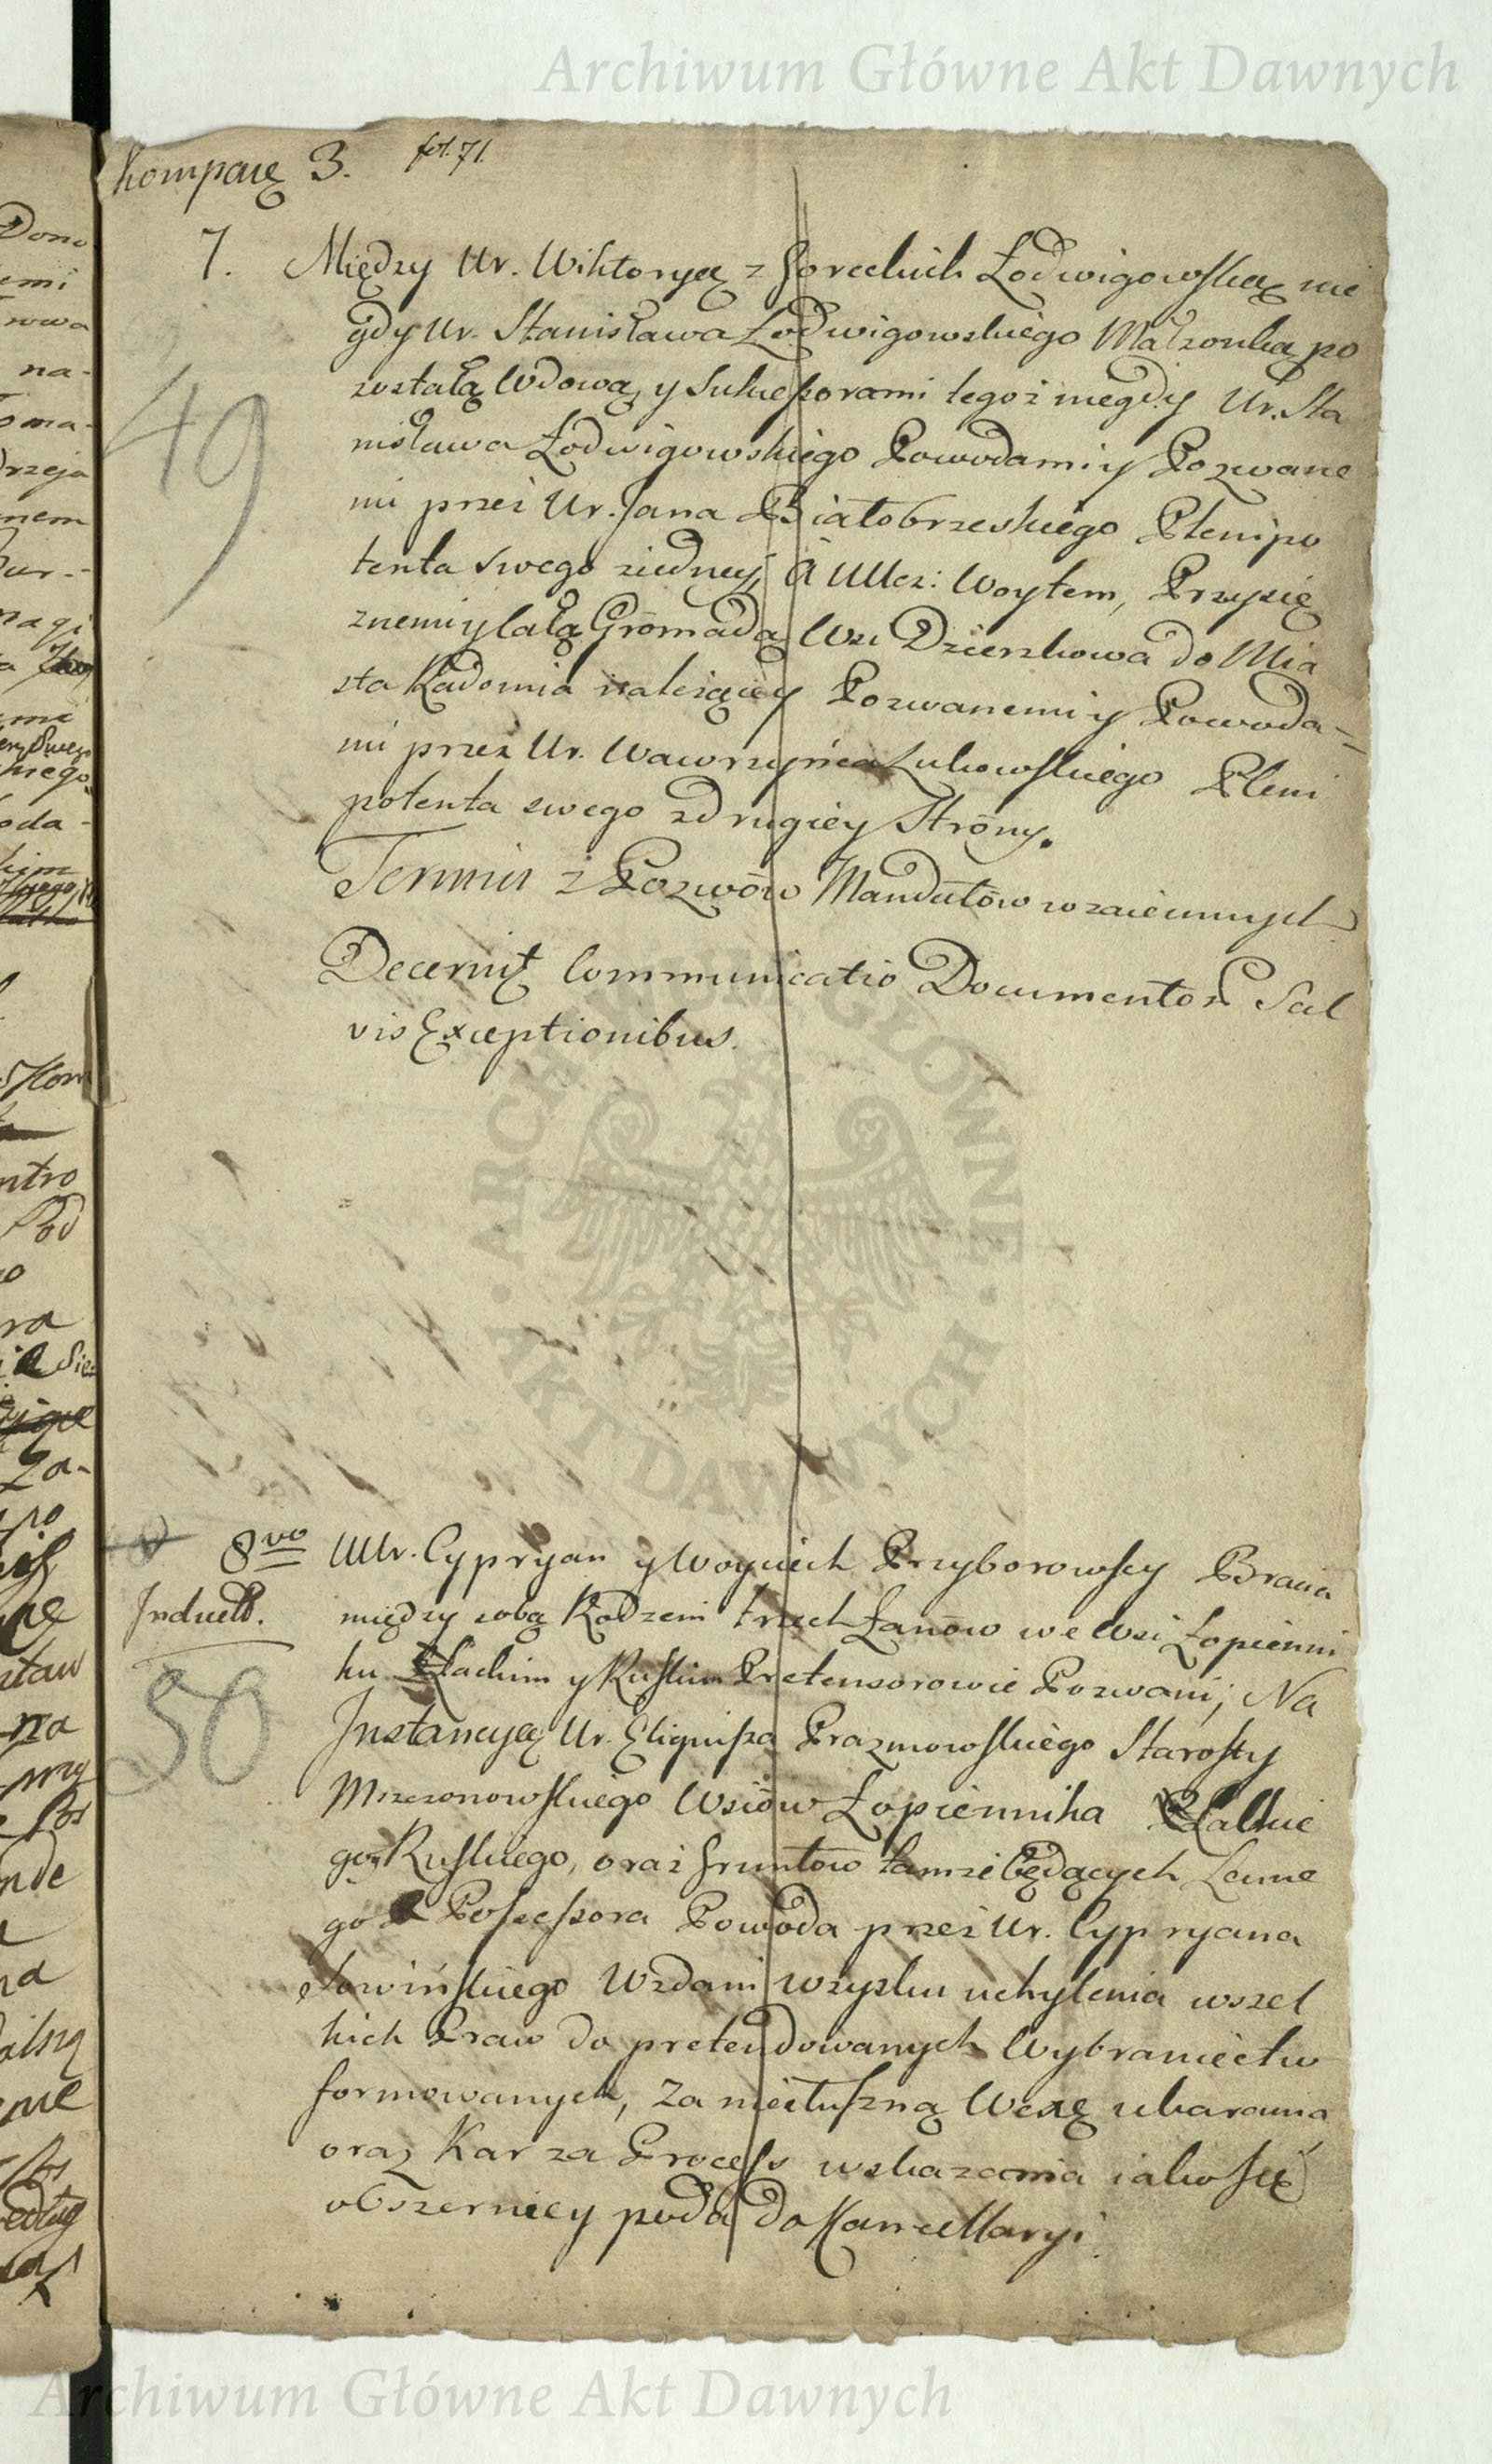 Archiwum Główne Akt Dawnych
Kompaię 3. fol. 71.
7. Między Ur. Wiktoryą z Goreckich Łodwigowską nie
gdy Ur. Stanisława Łodwigowskiego Małżonką po
zostałą Wdową, y Sukceszorami tegoż niegdy Ur. Sta
nisława Łodwigowskiego Powodami y Pozwane
mi przez Ur. Jana Białobrzeskiego Plenipo
49
tenta swego ziedney, A UUcz: Woytem, Przysię
znemi y całą Gromadą Wsi Dzierzkowa do Mia
sta Radomia należącey Pozwanemi y Powoda=
mi przez Ur. Wawrzyńca Łukowskiego Pleni
potenta swego zdrugiey Strony.
Termin z Pozwów Mandatów wzaiemnych
Decernit Communicatio Documentor Sal
vis Exceptionibus.
ARCHIWUM GŁÓWNE · AKT DAWNYCH ·
8vo UUr. Cypryan y Woyciech Przyborowscy Bracia
Inducta. między sobą Rodzeni trzech Łanów we Wsi Łopienni
ku Lackim y Ruskim Pretensorowie Pozwani; Na
50
Instancyą Ur. Eligiusza Prazmowskiego Starosty
Mszczonowskiego Wsiów Łopiennika Lackie
go Ruskiego, oraz gruntów tamże będących Leune
go Possessora Powoda przez Ur. Cypryana
Sowińskiego Wzdani wzysku uchylenia wszel
kich Praw do pretendowanych Wybraniectw
formowanych, za niesłuszną Wexę ukarania
oraz Kar za Process wskazania iako się
obszerniey poda do Kancellaryi.
Archiwum Główne Akt Dawnych